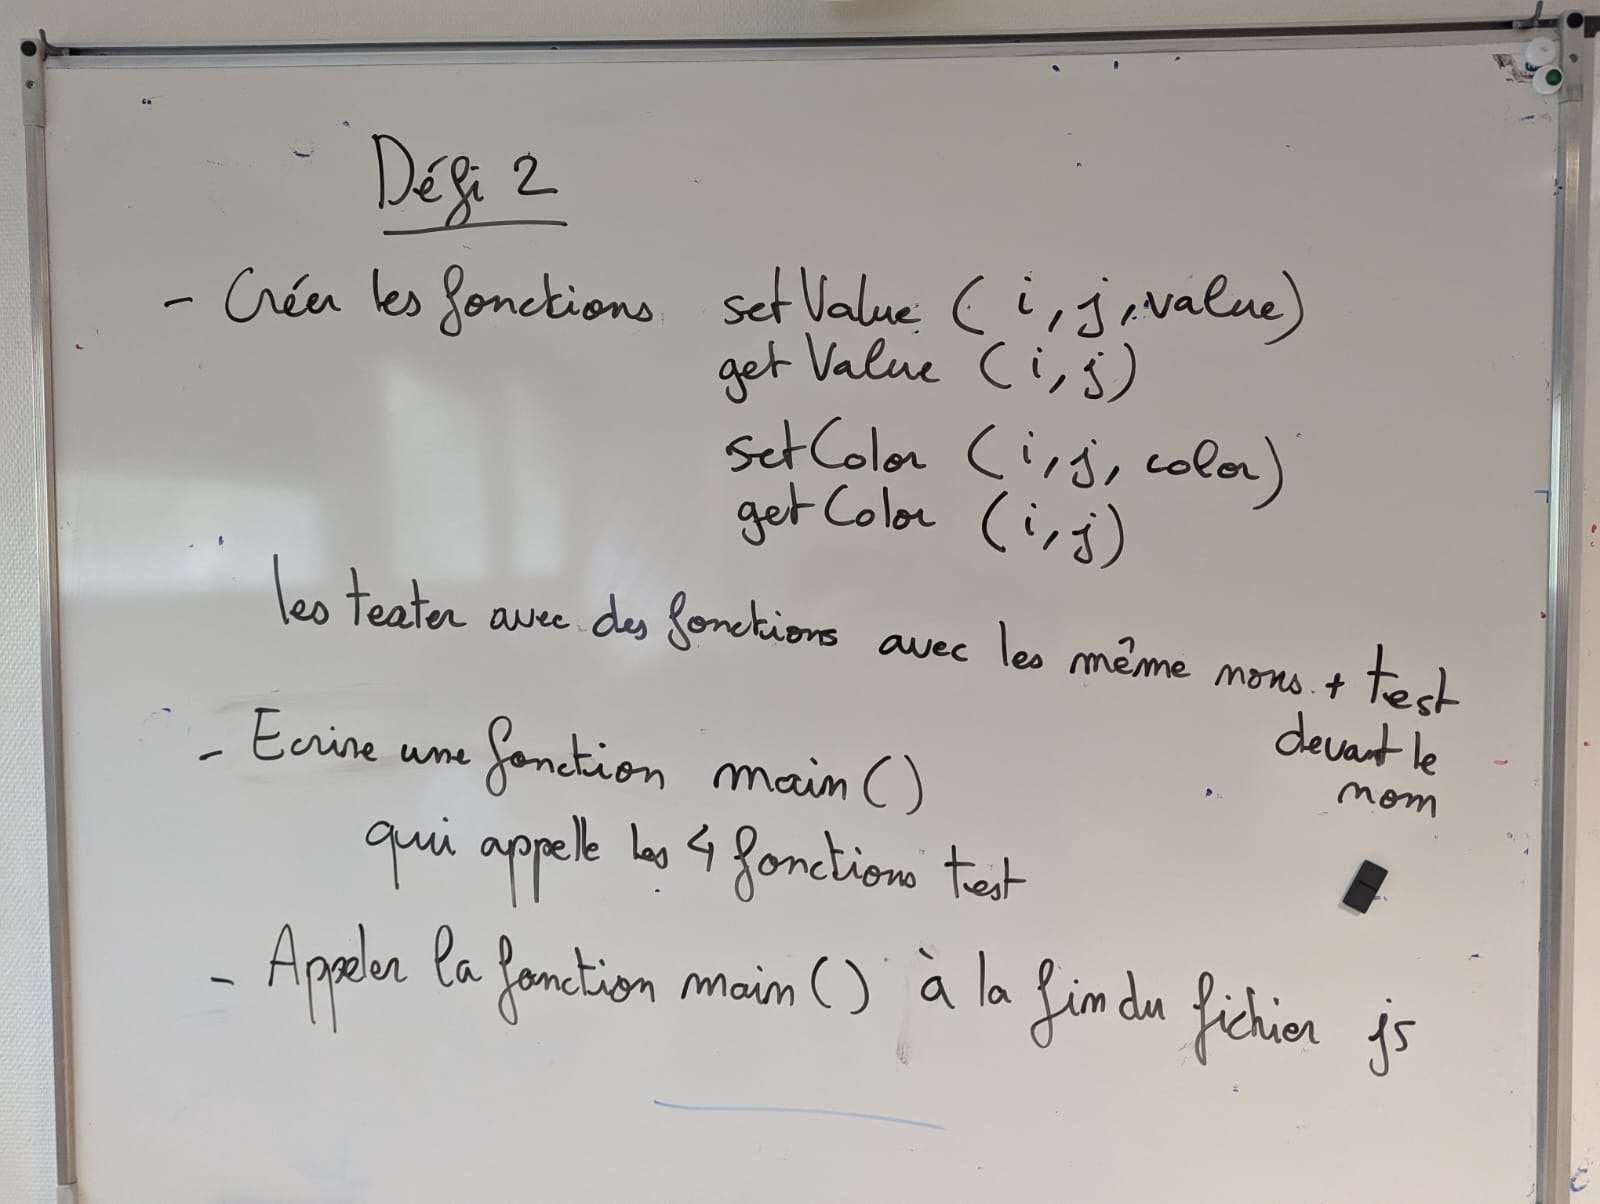 Défi 2
- Créer les fonctions setValue (i, j, value)
getValue (i, j)
setColor (i, j, color)
getColor (i, j)
les tester avec des fonctions avec les même noms + test
devant le
nom
- Ecrire une fonction main()
qui appelle les 4 fonctions test
- Appeler la fonction main() à la fin du fichier js